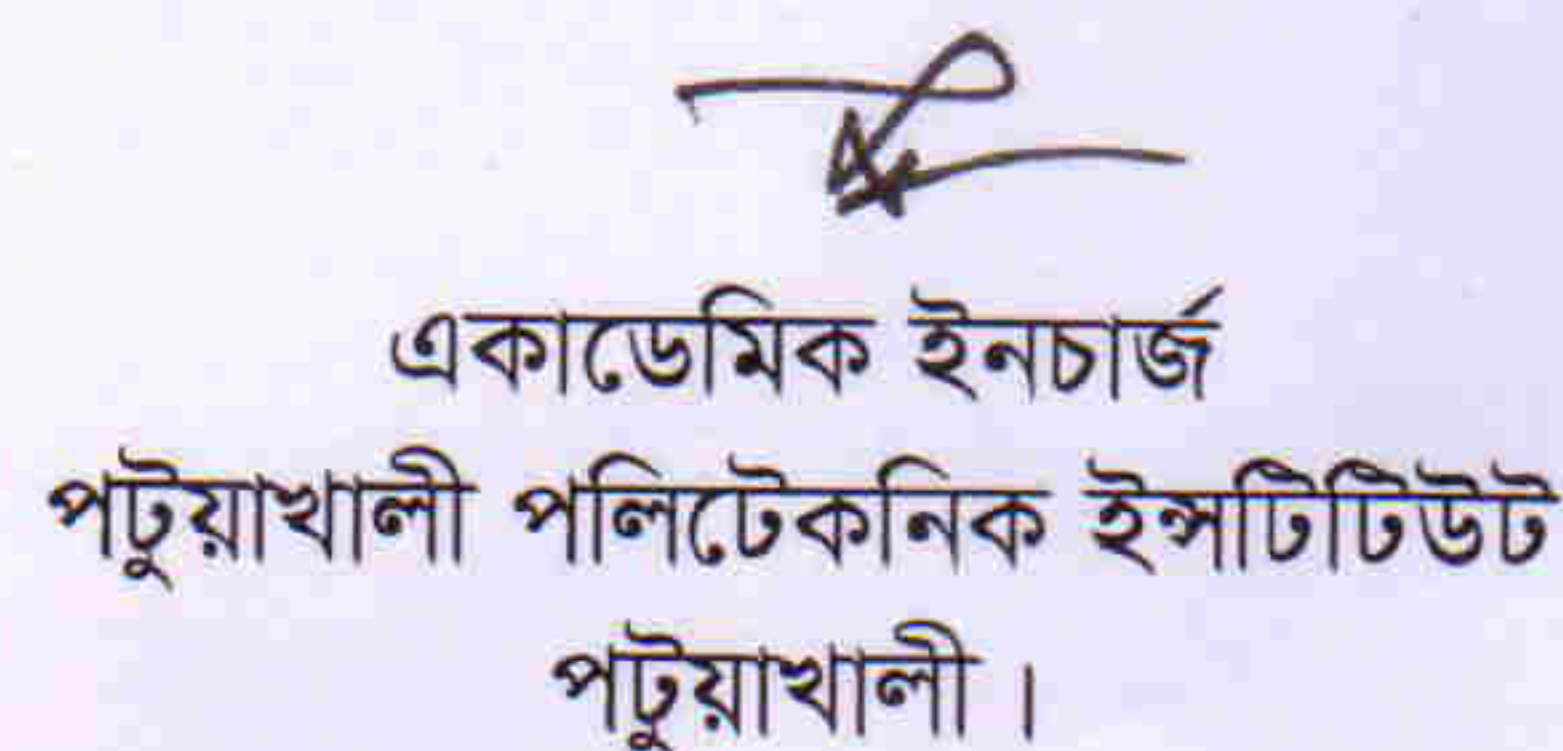 একাডেমিক ইনচার্জ
পটুয়াখালী পলিটেকনিক ইন্সটিটিউট
পটুয়াখালী।